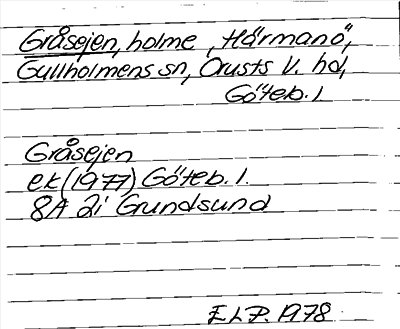 Gråsejen, holme, Härmanö,
Gullholmens sn, Orusts V. hd,
Göteb. l
Gråsejen
ek (1977) Göteb. l.
8A 2i Grundsund
ELP. 1978